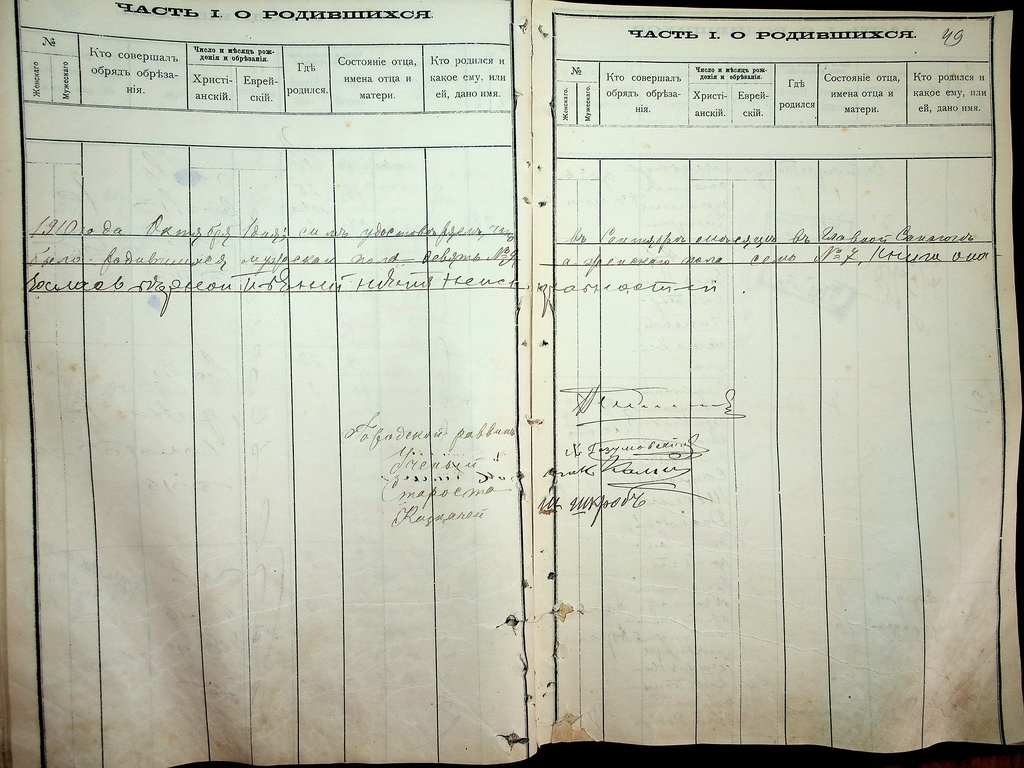 ЧАСТЬ I. О РОДИВШИХСЯ.
№
Женскаго.
Мужескаго.
Кто совершалъ обрядъ обрѣзанія.
Число и мѣсяцъ рожденія и обрѣзанія.
Христіанскій.
Еврейскій.
Гдѣ родился.
Состояніе отца, имена отца и матери.
Кто родился и какое ему, или ей, дано имя.
1910 года Октября 1 дня; симъ удостовѣряемъ, что
было родившихся мужескаго пола девять №9,
Городской раввинъ
Ученый
староста
Казначей
ЧАСТЬ I. О РОДИВШИХСЯ.
49
№
Женскаго.
Мужескаго.
Кто совершалъ обрядъ обрѣзанія.
Число и мѣсяцъ рожденія и обрѣзанія.
Христіанскій.
Еврейскій.
Гдѣ родился
Состояніе отца, имена отца и матери.
Кто родился и какое ему, или ей, дано имя.
въ Сентябрѣ мѣсяцѣ въ Главной Синагогѣ
а женскаго пола семь №7, книга
Разумовскій
Ш Шкробъ